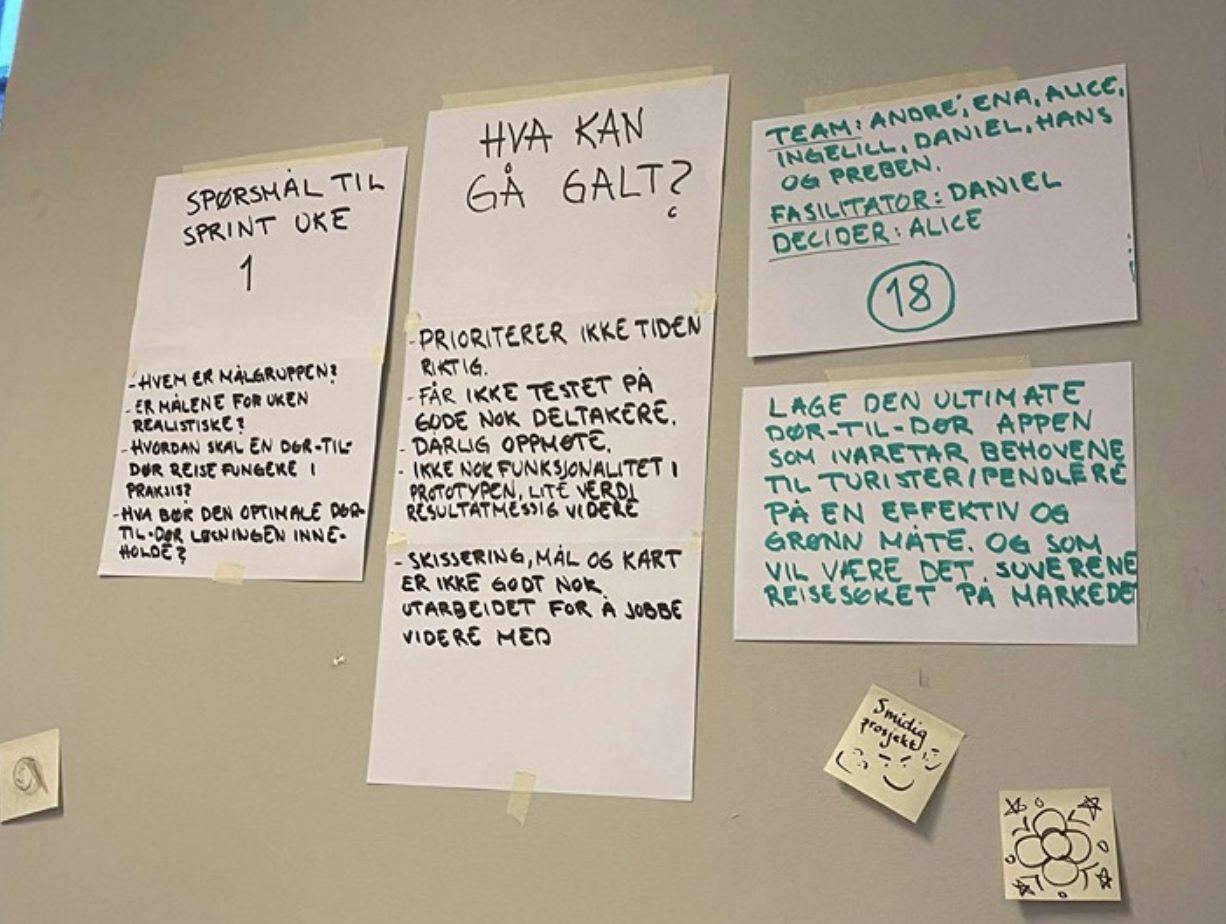 SPØRSMÅL TIL
SPRINT UKE
1
-HVEM ER MÅLGRUPPEN?
-ER MÅLENE FOR UKEN
REALISTISKE?
-HVORDAN SKAL EN DØR-TIL-
DØR REISE FUNGERE I
PRAKSIS?
-HVA BØR DEN OPTIMALE DØR-
TIL-DØR LØSNINGEN INNE-
HOLDE?
HVA KAN
GÅ GALT?
-PRIORITERER IKKE TIDEN
RIKTIG.
-FÅR IKKE TESTET PÅ
GODE NOK DELTAKERE.
- DÅRLIG OPPMØTE.
- IKKE NOK FUNKSJONALITET I
PROTOTYPEN, LITE VERDI
RESULTATMESSIG VIDERE
- SKISSERING, MÅL OG KART
ER IKKE GODT NOK
UTARBEIDET FOR Å JOBBE
VIDERE MED
TEAM: ANDRÉ, ENA, ALICE,
INGELILL, DANIEL, HANS
OG PREBEN.
FASILITATOR: DANIEL
DECIDER: ALICE
18
LAGE DEN ULTIMATE
DØR-TIL-DØR APPEN
SOM IVARETAR BEHOVENE
TIL TURISTER/PENDLERE
PÅ EN EFFEKTIV OG
GRØNN MÅTE. OG SOM
VIL VÆRE DET SUVERENE
REISESØKET PÅ MARKEDET
Smidig
prosjekt